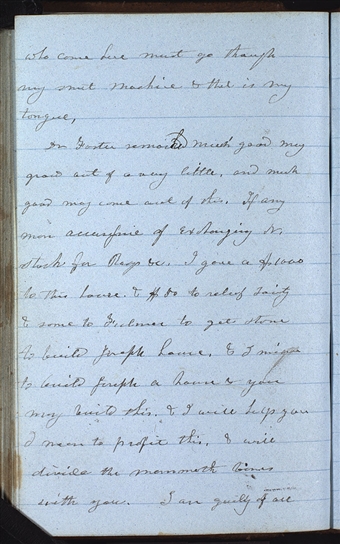 who come here must go through
my smut machine & that is my
tongue,
Dr Foster remarked much good may
grow out of a very little, and much
good may come out of this. If any
man accuse me of Exchanging &c.
stock for Rags &c. I gave a $1000
to this house. & $50 to relief Society
& some to Fulmer to get stone
to build Joseph house, & I mean
to build Joseph a house & you
may build this. & I will help you
I mean to profit this, & will
divide the mammoth bones
with you. I am guilty of all